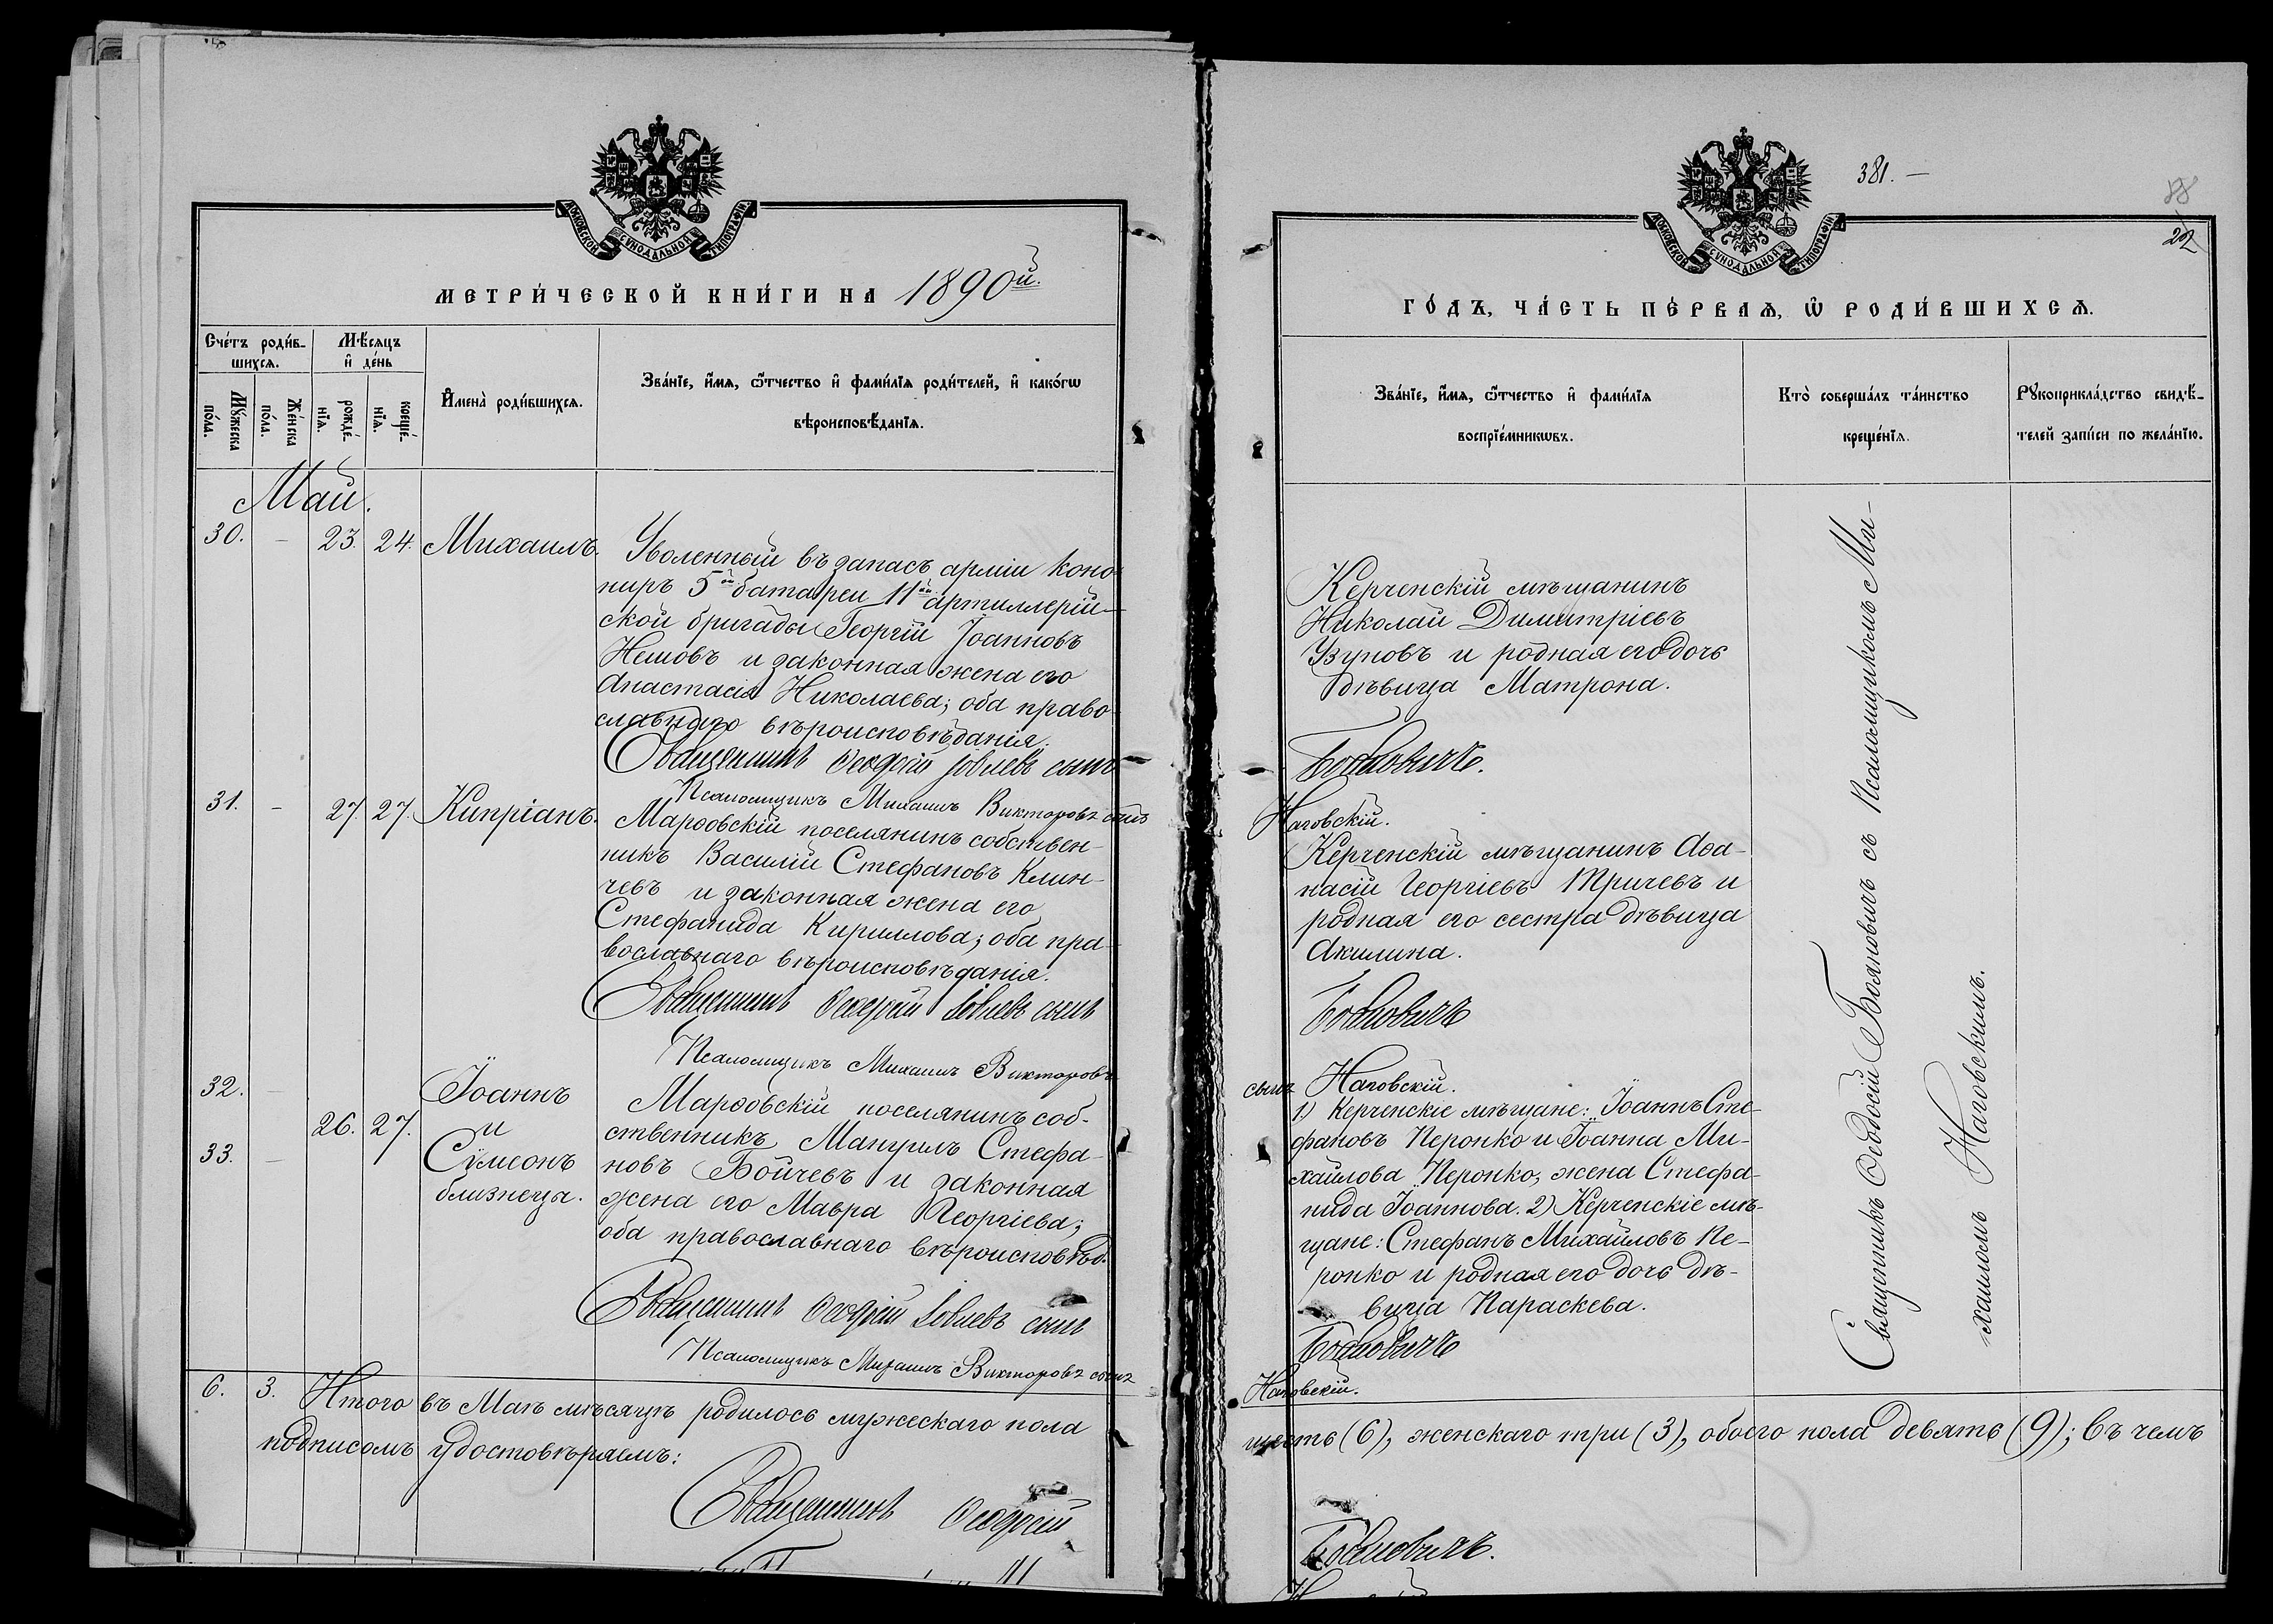 МОСКОВСКОЙ СѴНОДАЛЬНОЙ ТИПОГРАФІИ
МЕТРИ́ЧЕСКОЙ КНИ́ГИ НА 1890й.
Сче́тъ роди́в-
шихсѧ.
Мѣ́сѧцъ
и҆ де́нь
Мꙋ́жеска
по́ла.
Же́нска
по́ла.
рожде́-
нїѧ.
креще́-
нїѧ.
И҆мена̀ роди́вшихсѧ.
Зва́нїе, и҆́мѧ, ѻ҆́тчество и҆ фами́лїѧ роди́телей, и҆ како́гѡ
вѣроисповѣ́данїѧ.
Май.
30. - 23. 24. Михаилъ.
Уволенный въ запасъ арміи коно-
ниръ 5й батареи 11й артиллерій-
ской бригады Георгій Іоанновъ
Немовъ и законная жена его
Анастасія Николаева; оба право-
славнаго вѣроисповѣданія.
Священникъ Ѳеодосій Іовлевъ сынъ
Псаломщикъ Михаилъ Викторовъ сынъ
31. - 27. 27. Кипріанъ.
Марѳовскій поселянинъ собствен-
никъ Василій Стефановъ Клин-
чевъ и законная жена его
Стефанида Кириллова; оба пра-
вославнаго вѣроисповѣданія.
Священникъ Ѳеодосій Іовлевъ сынъ
Псаломщикъ Михаилъ Викторовъ
32. -
33. -
26. 27.
Іоаннъ
и
Сѵмеонъ
близнецы.
Марѳовскій поселянинъ соб-
ственникъ Мануилъ Стефа-
новъ Бойчевъ и законная
жена его Мавра Георгіева;
оба православнаго вѣроисповѣд.
Священникъ Ѳеодосій Іовлевъ сынъ
Псаломщикъ Михаилъ Викторовъ сынъ
6. 3. Итого въ Маѣ мѣсяцѣ родилось мужескаго пола
подписомъ удостовѣряемъ:
Священникъ Ѳеодосій
381.-
88
22
МОСКОВСКОЙ СѴНОДАЛЬНОЙ ТИПОГРАФІИ
ГО́ДЪ, ЧА́СТЬ ПЕ́РВАѦ, Ѡ҆ РОДИ́ВШИХСѦ.
Зва́нїе, и҆́мѧ, ѻ҆́тчество и҆ фами́лїѧ
воспрїе́мникѡвъ.
Кто̀ соверша́лъ та́инство
креще́нїѧ.
Рꙋкоприкла́дство свидѣ́-
телей за́писи по жела́нїю.
Керченскій мѣщанинъ
Николай Димитріевъ
Узуновъ и родная его дочь
дѣвица Матрона.
Бояновичъ.
Наговскій.
Керченскій мѣщанинъ Аѳа-
насій Георгіевъ Тричевъ и
родная его сестра дѣвица
Акилина.
Бояновичъ
сынъ Наговскій.
1) Керченскіе мѣщане: Іоаннъ Сте-
фановъ Перонко и Іоанна Ми-
хайлова Перонко, жена Стефа-
нида Іоаннова. 2) Керченскіе мѣ-
щане: Стефанъ Михайловъ Пе-
ронко и родная его дочь дѣ-
вица Параскева.
Бояновичъ
Наговскій.
Священникъ Ѳеодосій Бояновичъ съ Псаломщикомъ Ми-
хаиломъ Наговскимъ.
шесть (6), женскаго три (3), обоего пола девять (9); въ чемъ
Бояновичъ.